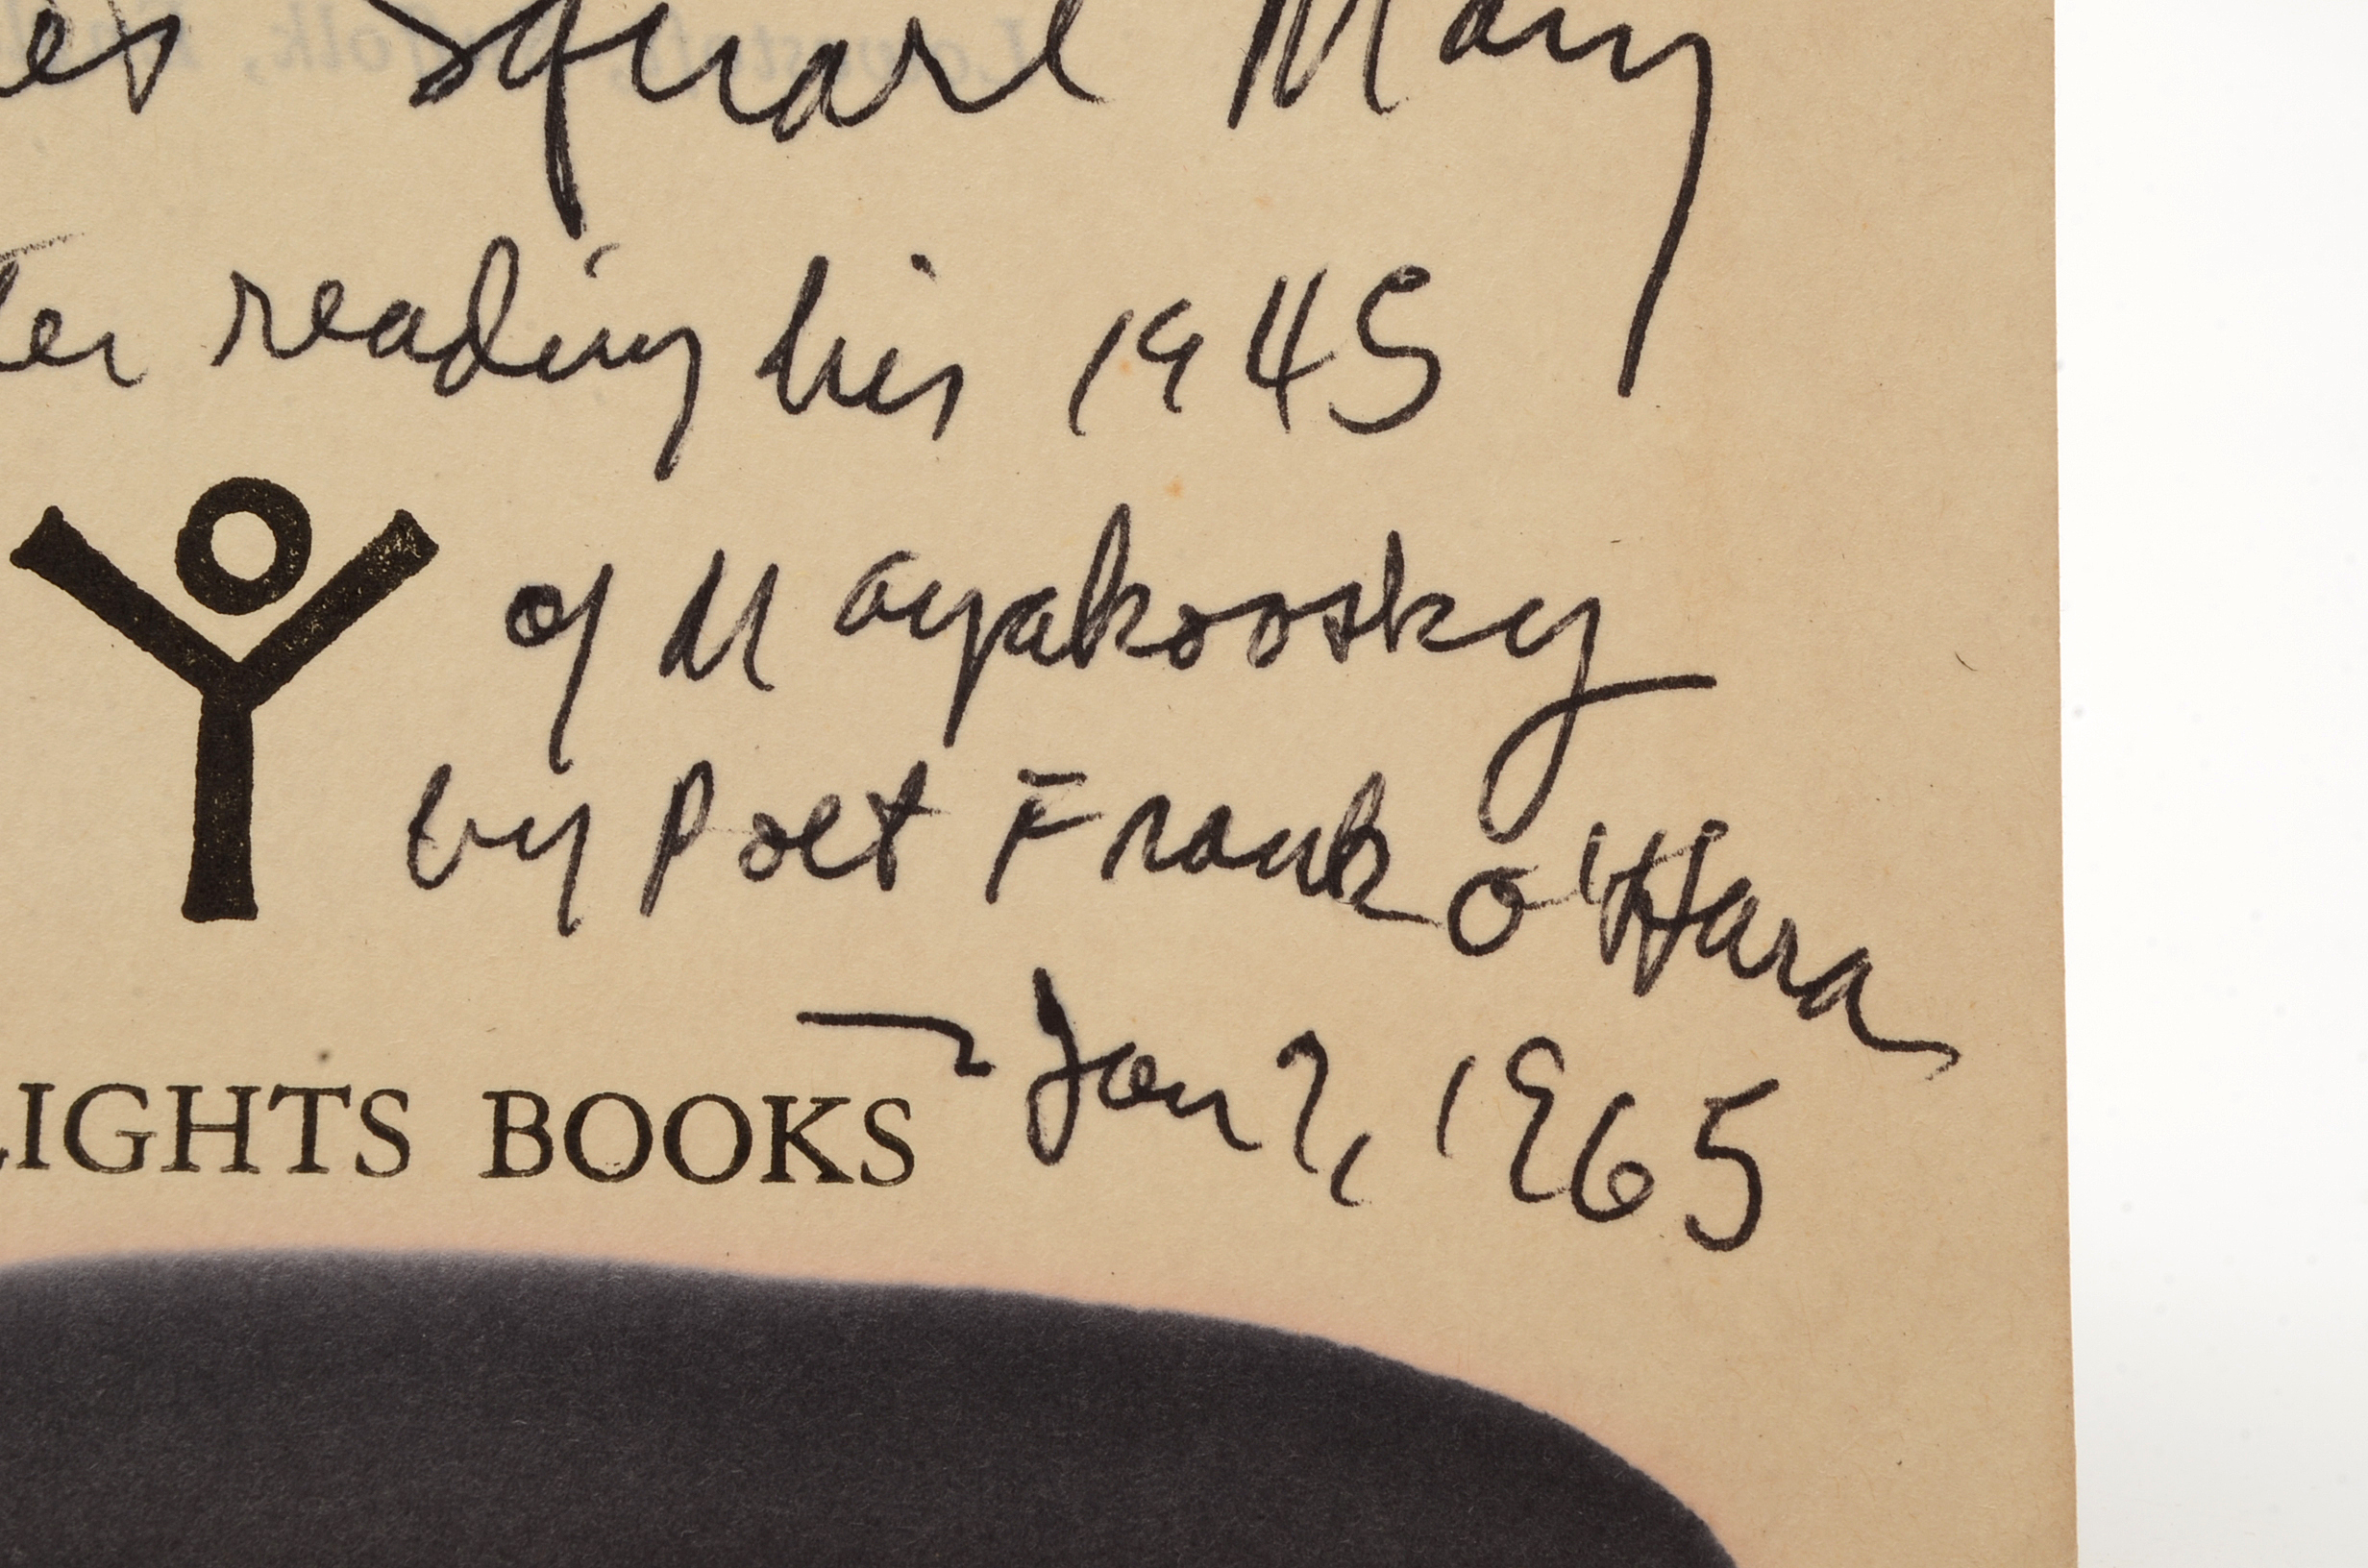 es Square Many
ter reading his 1945
of Mayakovsky
by Poet Frank O'Hara
— Jan 7, 1965
LIGHTS BOOKS